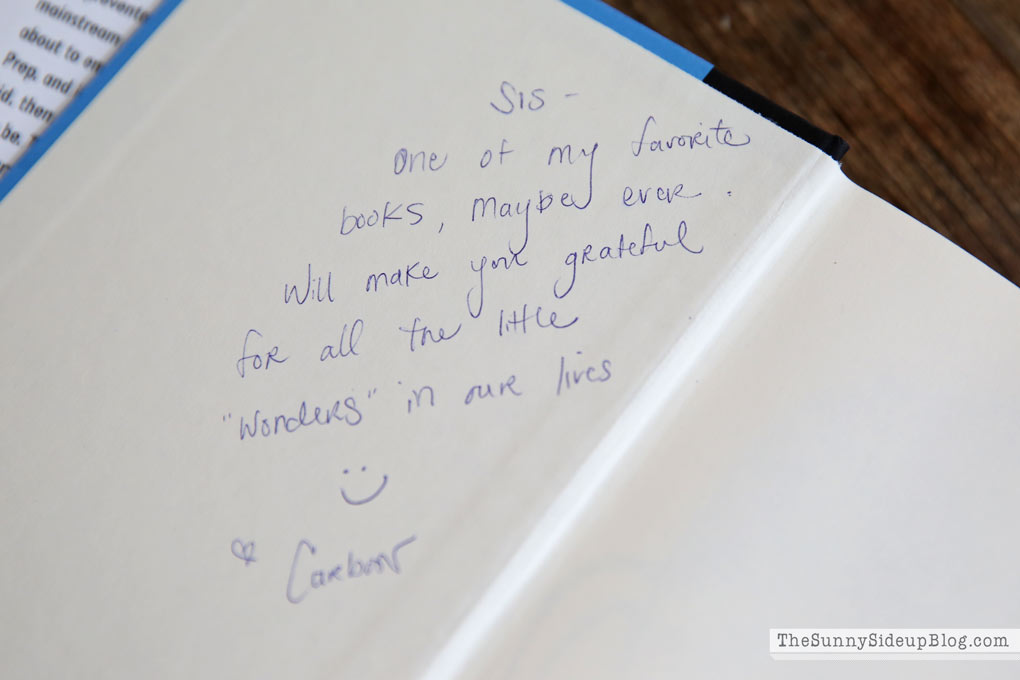 mainstream
about to
Prep, and
then
be.
Sis -
One of my favorite
books, maybe ever.
Will make your grateful
for all the little
"wonders" in our lives
TheSunnySideupBlog.com